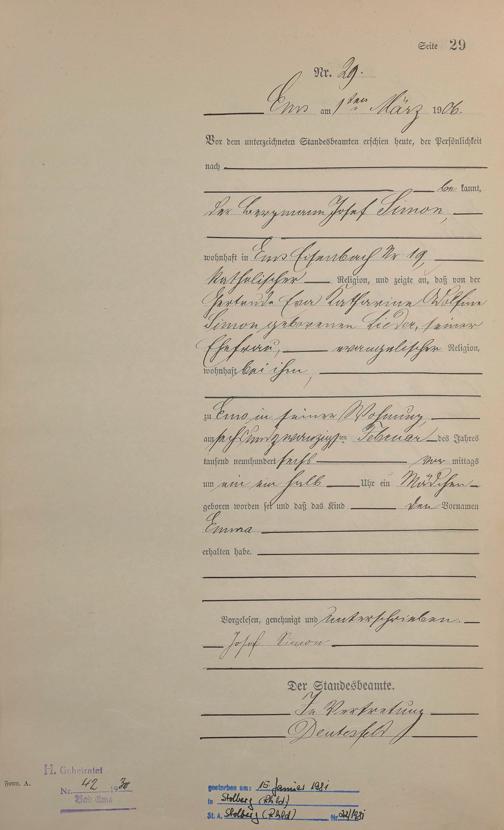 Seite 29
Nr. 29.
Ems am 1ten März 1906.
Vor dem unterzeichneten Standesbeamten erschien heute, der Persönlichkeit
nach
be kannt,
der Bergmann Josef Simon,
wohnhaft in Ems Eisenbach Nr 19,
katholischer Religion, und zeigte an, daß von der
Gertrude Eva Katharine
Simon geborenen seiner
Ehefrau, evangelischer Religion,
wohnhaft bei ihm,
zu Ems in seiner Wohnung,
am sechsundzwanzigsten Februar des Jahres
tausend neunhundert sechs vor mittags
um ein ein halb Uhr ein Mädchen
geboren worden sei und daß das Kind den Vornamen
Emma
erhalten habe.
Vorgelesen, genehmigt und unterschrieben.
Josef Simon
Der Standesbeamte.
In Vertretung
Form. A.
H. Geheiratet
Nr. 42 1930
Bad Ems
gestorben am: 15 Januar 1981
in Stolberg (Rhld)
St. A. Stolberg (Rhld) Nr.